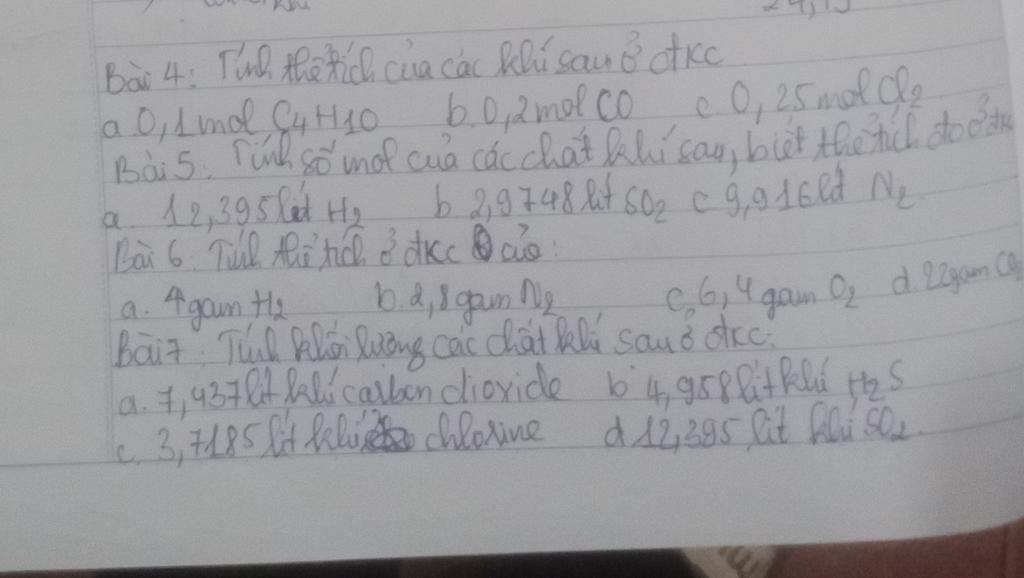 24,79
Bài 4: Tính thể tích của các khí sau ở đkc
a 0,1mol C4H10 b. 0,2mol CO c 0,25mol Cl2
Bài 5. Tính số mol của các chất khí sau, biết thể tích đo ở đkc
a 12,395 lít H2 b 2,9748 lít SO2 c 9,916 lít N2
Bài 6. Tính thể tích ở đkc của:
a. 4gam H2 b. 2,8gam N2 c. 6,4gam O2 d. 22gam CO2
Bài 7. Tính khối lượng các chất khí sau ở đkc:
a. 7,437 lít khí carbon dioxide b 4,958 lít khí H2S
c. 3,7185 lít khí chlorine d 12,395 lít khí SO2